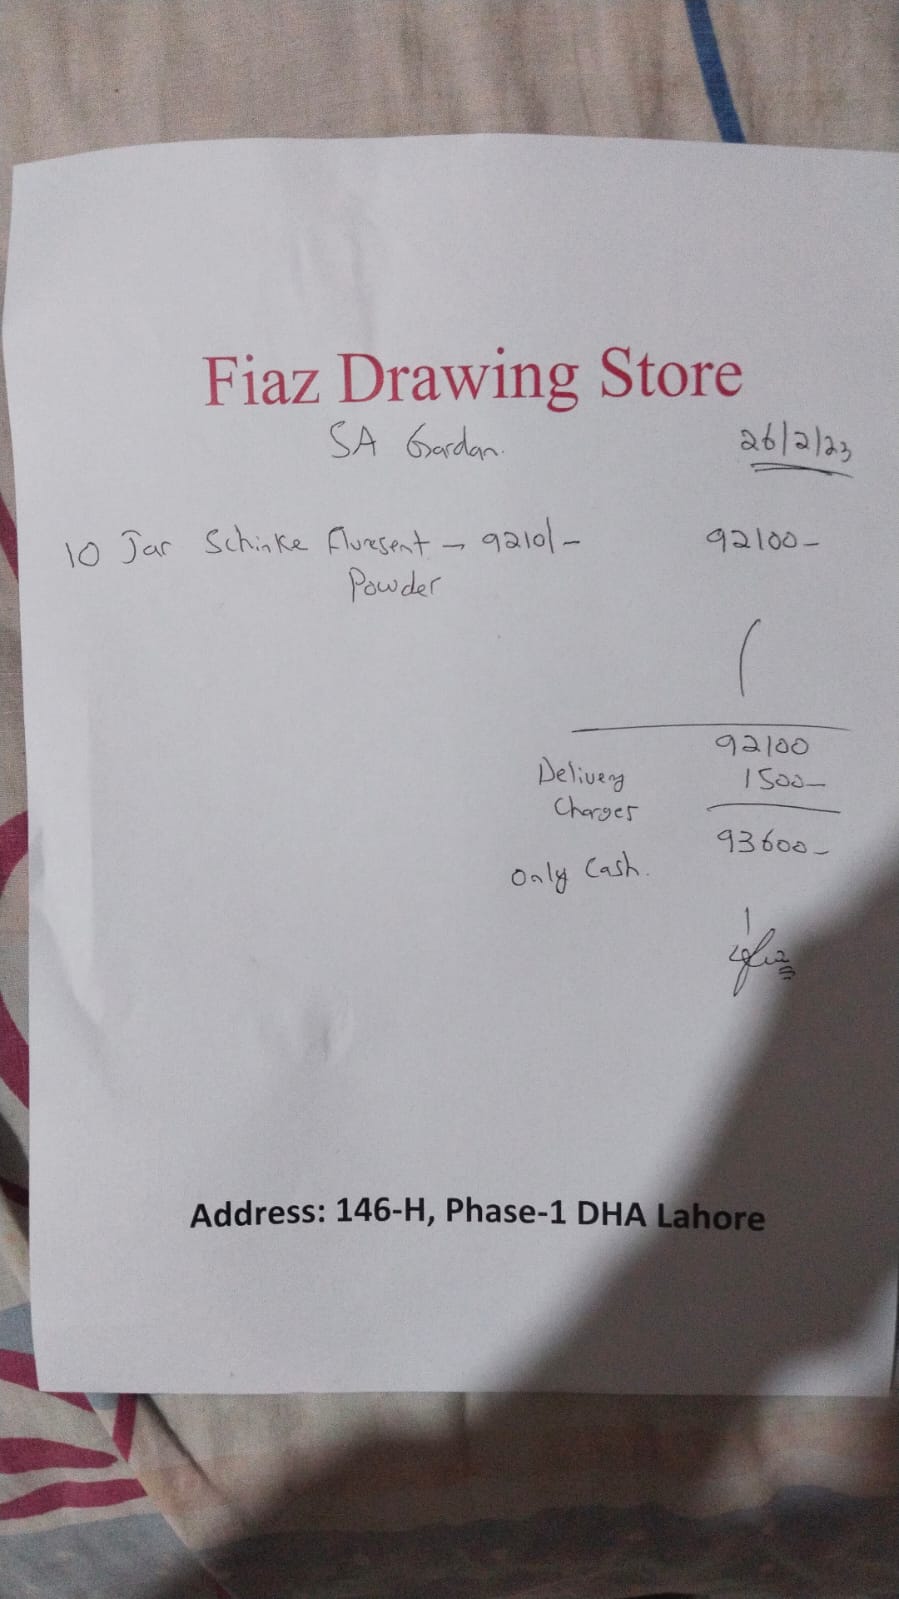 Fiaz Drawing Store
SA Gardan.
26/2/23
10 Jar Schinke Fluresent - 9210/- 92100-
Powder
92100
Delivery 1500-
Charges
93600-
Only Cash.
Address: 146-H, Phase-1 DHA Lahore